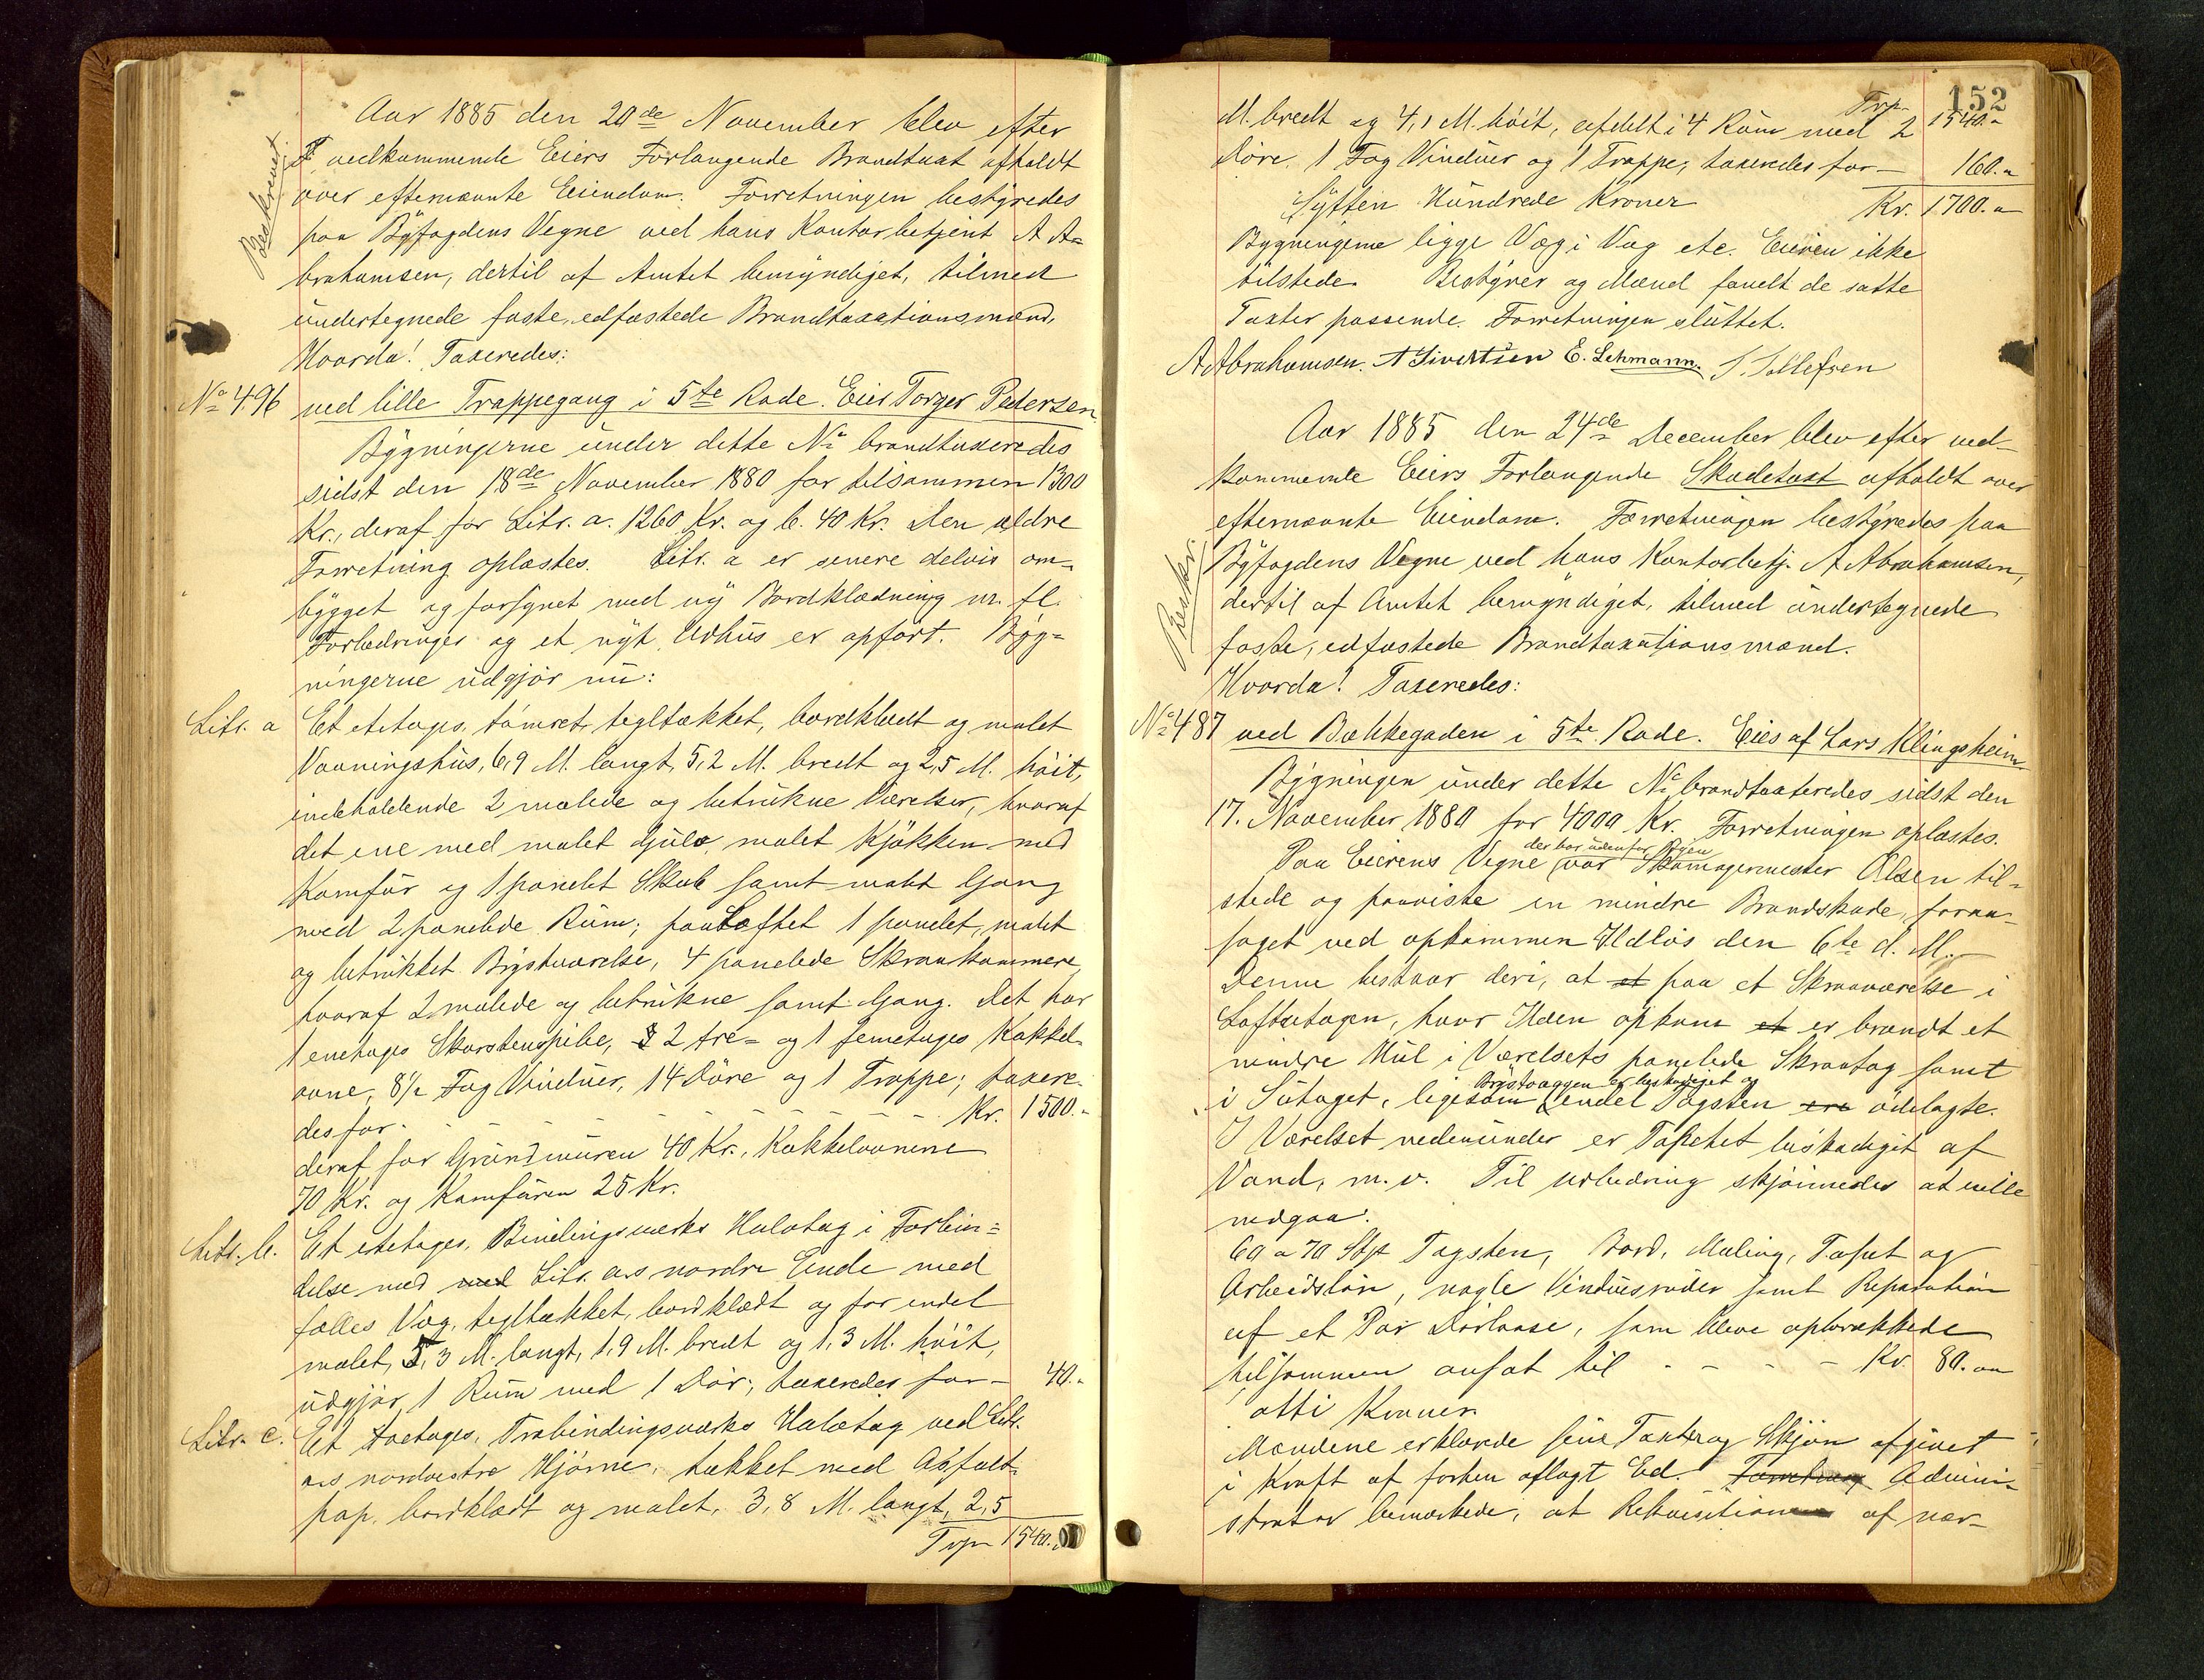 Beskrevet.
Aar 1885 den 20de November blev efter
vedkommende Eiers Forlangende Brandtaxt afholdt
over efternævnte Eiendom. Forretningen bestyredes
paa Byfogdens Vegne ved hans Kontorbetjent A A=
brahamsen, dertil af Amtet bemyndiget, tilmed
undertegnede faste, edfæstede Brandtaxationsmænd,
Hvorda! Taxeredes:
No 496 ved lille Trappegang i 5te Rode. Eier Torger Pedersen
Bygningerne under dette No brandtaxeredes
sidst den 18de November 1880 for tilsammen 1300
Kr., deraf for Litr. a. 1260 Kr. og b. 40 Kr. Den ældre
Forretning oplæstes. Litr. a er senere delvis om=
bygget og forsynet med ny Bordklædning m. fl.
Forbedringer og et nyt Udhus er opført. Byg=
ningerne udgjør nu:
Litr. a Et etetages, tømret, tegltækket, bordklædt og malet
Vaaningshus, 6,9 M. langt, 5,2 M. bredt og 2,5 M. høit,
indeholdende 2 malede og betrukne Værelser, hvoraf
det ene med malet Gulv, malet Kjøkken med
Komfur og 1 panelet Skab samt malet Gang
med 2 panelede Rum; paa Loftet 1 panelet, malet
og betrukket Brystværelse, 4 panelede Skraakammere,
hvoraf 2 malede og betrukne samt Gang. Det har
1 enetages Skorstenspibe, 2 tre= og 1 femetages Kakkel-
ovne, 8½ Fag Vinduer, 14 Døre og 1 Trappe; taxere-
des for - - - - - - - - Kr. 1500.-
deraf for Grundmuren 40 Kr., Kakkelovnene
70 Kr. og Komfuren 25 Kr.
Litr. b. Et etetages, Bindingsværks Halvtag i Forbin=
delse med med Litr. a's nordre Ende med
fælles Væg, tegltækket, bordklædt og for endel
malet, 5,3 M. langt, 1,9 M. bredt og 1,3 M. høit,
udgjør 1 Rum med 1 Dør; taxeredes for - 40.-
Litr. c. Et toetages, Trebindingsværks Halvtag ved Litr.
a's nordvestre Hjørne, tækket med Asfalt-
pap, bordklædt og malet, 3,8 M. langt, 2,5
Trp. 1540.-
152
Trp. 1540.-
M. bredt og 4,1 M. høit, afdelt i 4 Rum med 2
Døre, 1 Fag Vinduer og 1 Trappe, taxeredes for - 160.-
Sytten Hundrede Kroner Kr. 1700.-
Bygningerne ligge Væg i Væg etc. Eieren ikke
tilstede. Bestyrer og Mænd fandt de satte
Taxter passende. Forretningen sluttet.
A Abrahamsen. A Sivertsen E. Lehmann. T. Tollefsen
Beskr.
Aar 1885 den 24de December blev efter ved-
kommende Eiers Forlangende Skadetaxt afholdt over
efternævnte Eiendom. Forretningen bestyredes paa
Byfogdens Vegne ved hans Kontorbetj. A Abrahamsen,
dertil af Amtet bemyndiget, tilmed undertegnede
faste, edfæstede Brandtaxationsmænd.
Hvorda! Taxeredes:
No 487 ved Bækkegaden i 5te Rode. Eies af Lars Klingsheim
Bygningen under dette No brandtaxteredes sidst den
17. November 1880 for 4000 Kr. Forretningen oplæstes.
der bor udenfor Byen
Paa Eierens Vegne var Skomagermester Olsen til=
stede og paaviste en mindre Brandskade, foraar-
saget ved opkommen Ildløs den 6te d. M.
Denne bestaar deri, at et paa et Skraaværelse i
Loftsetagen, hvor Ilden opkom et er brændt et
mindre Hul i Værelsets panelede Skraatag samt
Brystvæggen er beskadiget og
i Sutaget, ligesom endel Tagsten ere ødelagte.
I Værelset nedenunder er Tapetet beskadiget af
Vand, m. v. Til Udbedring skjønnedes at ville
medgaa:
60 a 70 Stk Tagsten, Bord, Maling, Tapet og
Arbeidsløn, nogle Vinduesruder samt Reparation
af et Par Dørlaase, som bleve opbrækkede
tilsammen ansat til - - - - Kr. 80.00
otti Kroner.
Mændene erklærede sine Taxter og Skjøn afgivet
i Kraft af forhen aflagt Ed. Forretning Admini-
strator bemærkede, at Rekvisitionen af nær-